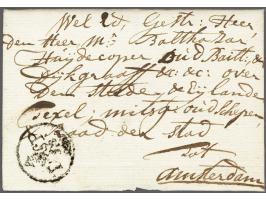 Wel Ed Gestr: Heer
den Heer Mr: Balthazar
Huijdecoper Oud Baill: &
Dijkgraaff &c: &c: over
Den Stede & Eijlande
Texel, mitsg: oud schepen
raad den stad
tot
Amsterdam